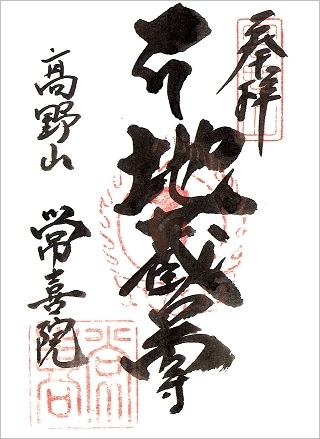 奉拝
地蔵尊
髙野山 常喜院